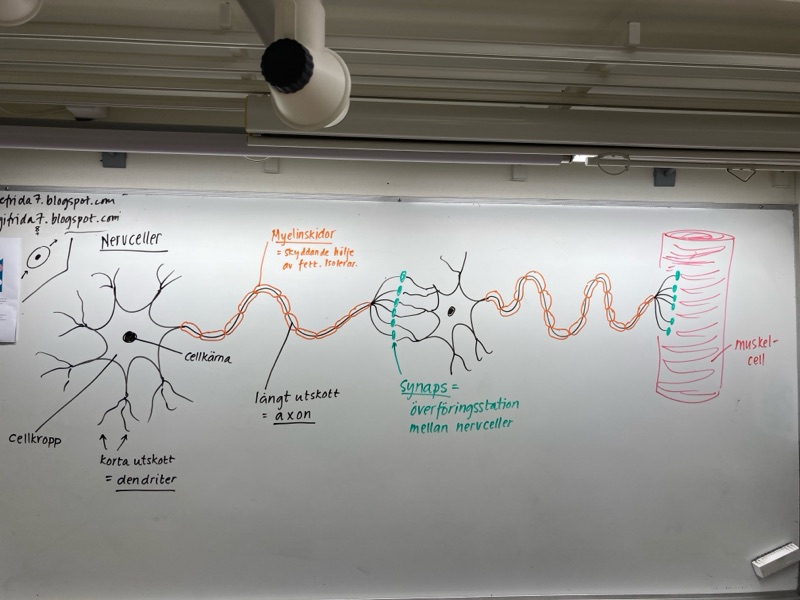 efrida7.blogspot.com
gifrida7.blogspot.com
Nervceller
Myelinskidor
= skyddande hölje
av fett. Isolerar.
cellkärna
långt utskott
= axon
Synaps =
överföringsstation
mellan nervceller
muskel-
cell
cellkropp
korta utskott
= dendriter